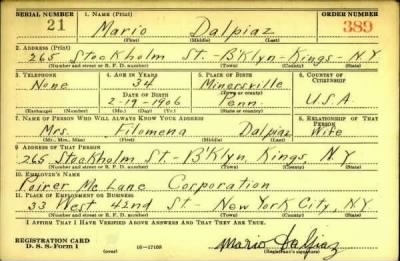 SERIAL NUMBER 1. NAME (Print) ORDER NUMBER
21 Mario Dalpiaz 389
(First) (Middle) (Last)
2. ADDRESS (Print)
265 Stockholm St.- B'Klyn.- Kings.- N.Y
(Number and street or R. F. D. number) (Town) (County) (State)
3. TELEPHONE 4. AGE IN YEARS 5. PLACE OF BIRTH 6. COUNTRY OF CITIZENSHIP
None 34 Minersville
DATE OF BIRTH (Town or county)
2-19-1906 Penn. U.S.A.
(Exchange) (Number) (Mo.) (Day) (Yr.) (State or country)
7. NAME OF PERSON WHO WILL ALWAYS KNOW YOUR ADDRESS 8. RELATIONSHIP OF THAT PERSON
Mrs. Filomena Dalpiaz Wife
(Mr., Mrs., Miss) (First) (Middle) (Last)
9. ADDRESS OF THAT PERSON
265 Stockholm St.- B'Klyn. Kings, N.Y
(Number and street or R. F. D. number) (Town) (County) (State)
10. EMPLOYER'S NAME
Poirer Mc Lane Corporation
11. PLACE OF EMPLOYMENT OR BUSINESS
33 West 42nd St- New York City, N.Y
(Number and street or R. F. D. number) (Town) (County) (State)
I AFFIRM THAT I HAVE VERIFIED ABOVE ANSWERS AND THAT THEY ARE TRUE.
REGISTRATION CARD
D. S. S. Form 1 16-17105 Mario Dalpiaz
(Registrant's signature)